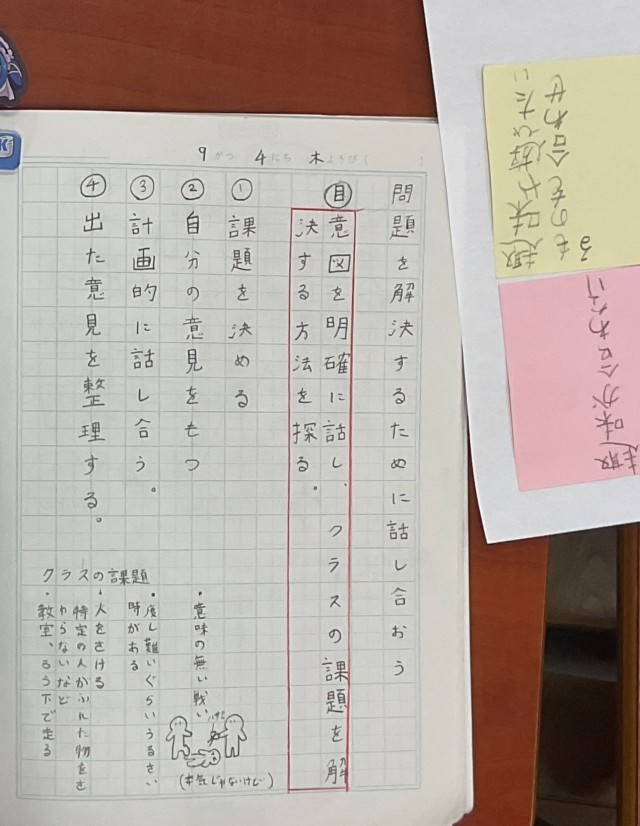 9がつ 4にち 木ようび
問題を解決するために話し合おう
目 意図を明確に話し、クラスの課題を解
決する方法を探る。
① 課題を決める
② 自分の意見をもつ
③ 計画的に話し合う。
④ 出た意見を整理する。
クラスの課題
・意味の無い戦い
(本気じゃないけど)
・度し難いぐらいうるさい
時がある
・人をさける
特定の人がふれた物をさ
わらないなど
・教室、ろう下で走る
趣味や遊びたい
ものを合わせ
る
趣味が合わ
K